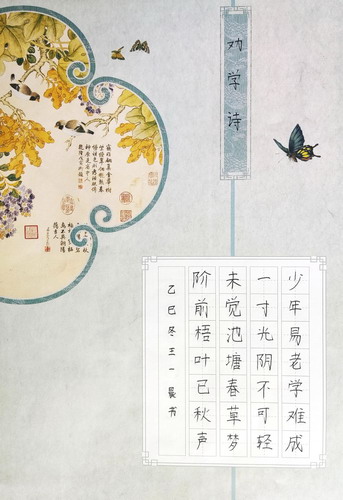 劝学诗
少年易老学难成
一寸光阴不可轻
未觉池塘春草梦
阶前梧叶已秋声
乙巳冬王一晨书